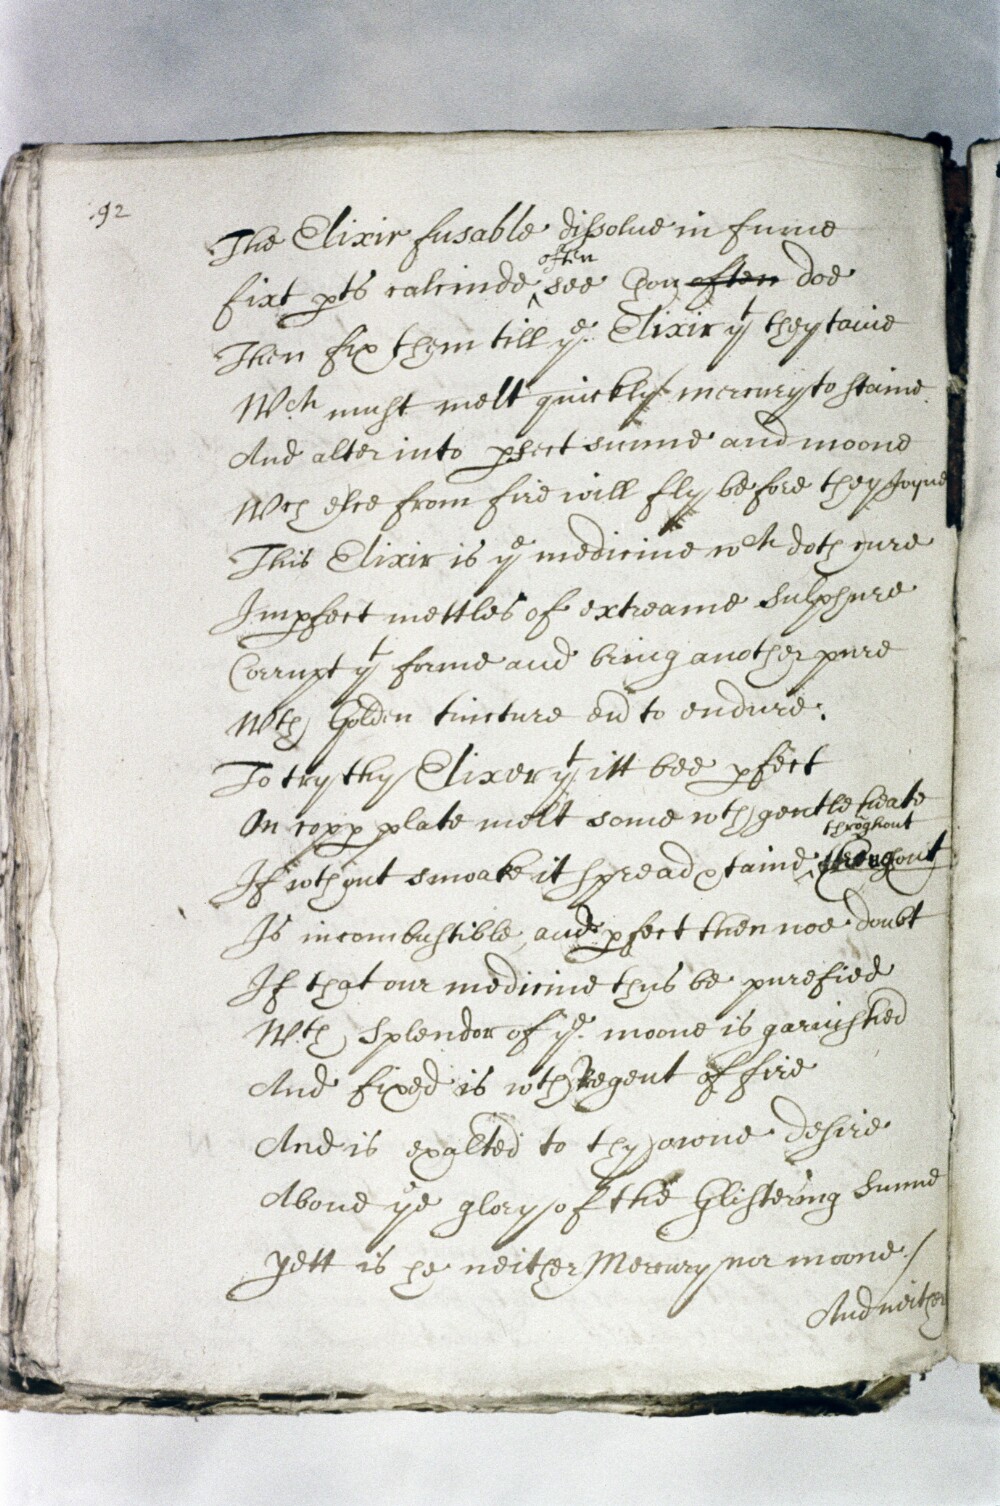 .92
The Elixir fusable dissolue in fume
often
fixt pts calcinde ^ see thou often doe
Then fix them till ye. Elixir yt they taine
Wch must melt quickly mercury to staine.
And alter into pfect sunne and moone
Wch else from fire will fly before they Joyne
This Elixir is ye medicine wch doth cure
Impfect mettles of extreame Sulphure
Corrupt yt forme and bring another pure
Wth Golden tincture end to endure.
To try thy Elixer yt itt bee pfect
On copp plate melt some wth gentle heate
throghout
If wthout smoake it spread &
Is incombustible and pfect then noe doubt
If that our medicine thus be purefied
Wth Splendor of ye. moone is garnished
And fixed is wth Regent of fire
And is exalted to thy owne desire
Aboue ye glory of the Glistering Sunne
Yett is he neither Mercury nor moone./
And neither